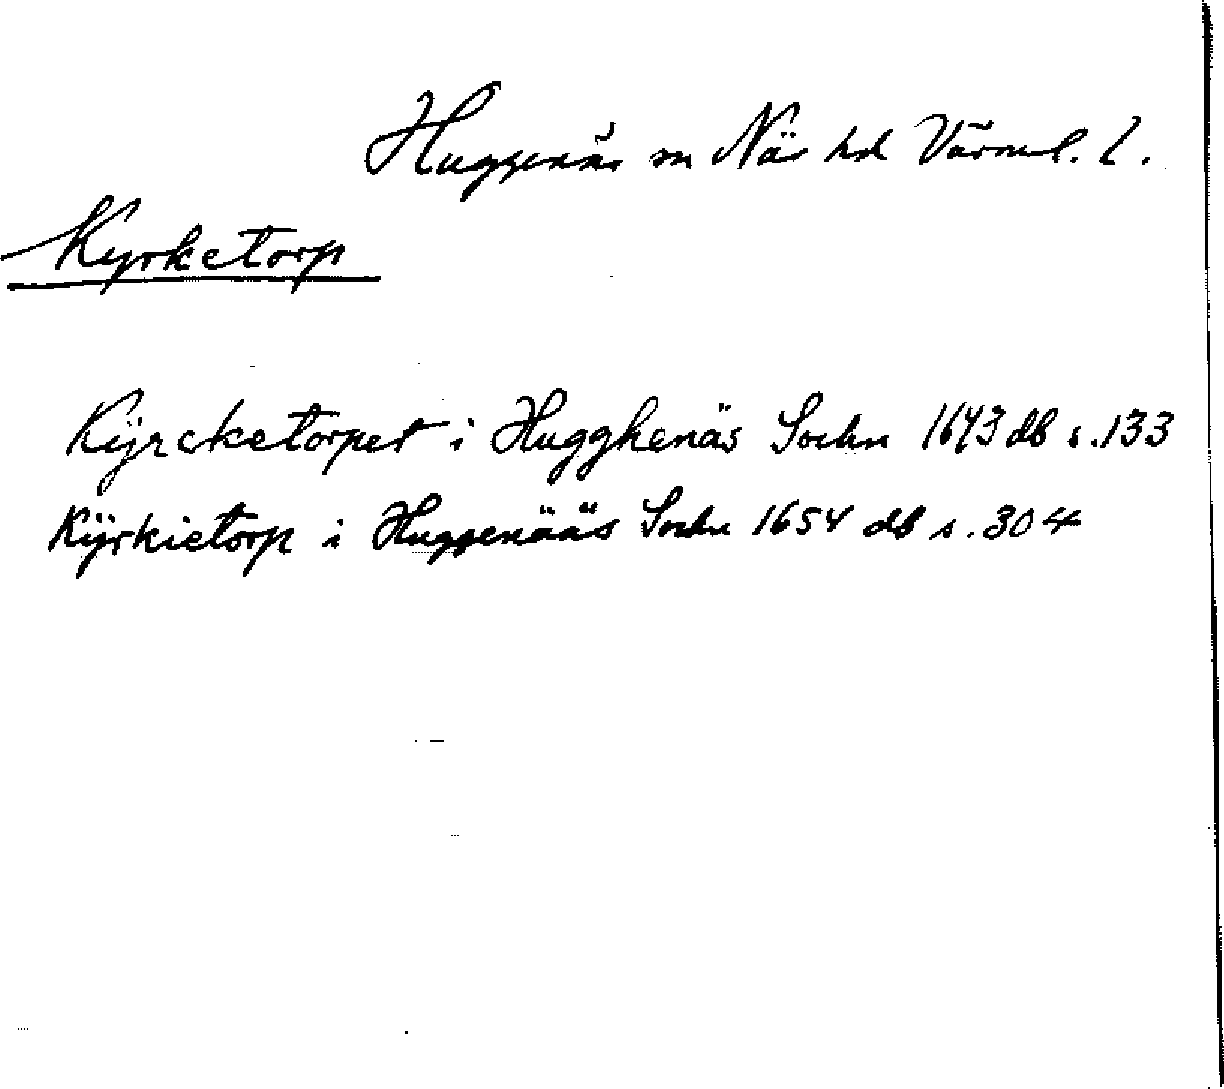 Huggenäs sn Näs hd Värml. l.
Kyrketorp
Kÿrcketorpet i Hugghenäs Sochn 1643 db s. 133
Kÿrkietorp i Huggenääs Sochn 1654 db s. 304